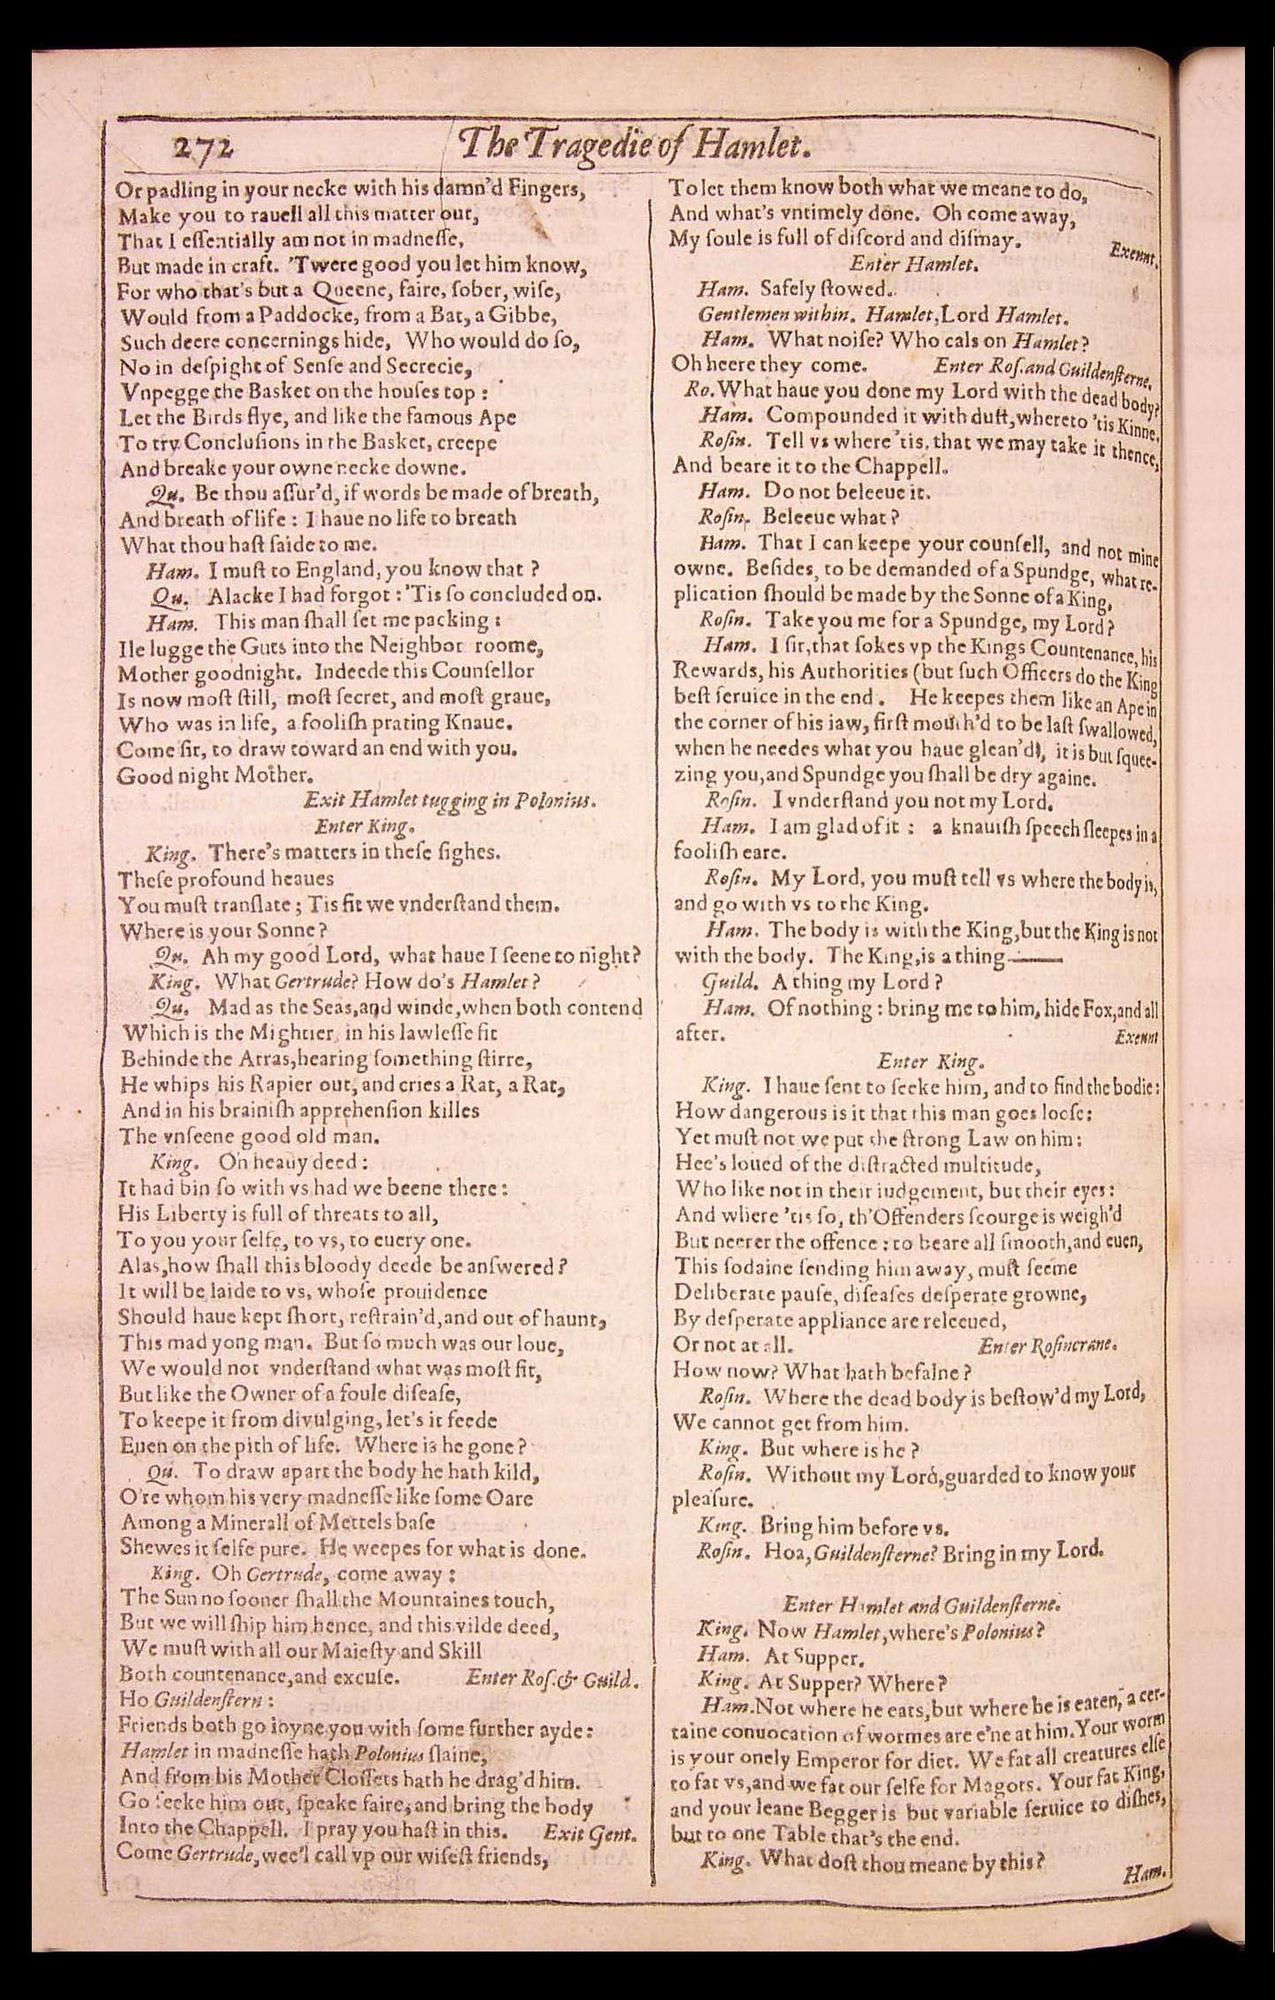 272
The Tragedie of Hamlet.
Or padling in your necke with his damn'd Fingers,
Make you to rauell all this matter out,
That I eſſentially am not in madneſſe,
But made in craft. 'Twere good you let him know,
For who that's but a Queene, faire, ſober, wiſe,
Would from a Paddocke, from a Bat, a Gibbe,
Such deere concernings hide, Who would do ſo,
No in deſpight of Senſe and Secrecie,
Vnpegge the Basket on the houſes top :
Let the Birds flye, and like the famous Ape
To try Concluſions in the Basket, creepe
And breake your owne necke downe.
Qu. Be thou aſſur'd, if words be made of breath,
And breath of life : I haue no life to breath
What thou haſt ſaide to me.
Ham. I muſt to England, you know that ?
Qu. Alacke I had forgot : 'Tis ſo concluded on.
Ham. This man ſhall ſet me packing :
Ile lugge the Guts into the Neighbor roome,
Mother goodnight. Indeede this Counſellor
Is now moſt ſtill, moſt ſecret, and moſt graue,
Who was in life, a fooliſh prating Knaue.
Come ſir, to draw toward an end with you.
Good night Mother.
Exit Hamlet tugging in Polonius.
Enter King.
King. There's matters in theſe ſighes.
Theſe profound heaues
You muſt tranſlate ; Tis fit we vnderſtand them.
Where is your Sonne ?
Qu. Ah my good Lord, what haue I ſeene to night?
King. What Gertrude? How do's Hamlet ?
Qu. Mad as the Seas, and winde, when both contend
Which is the Mightier, in his lawleſſe fit
Behinde the Arras, hearing ſomething ſtirre,
He whips his Rapier out, and cries a Rat, a Rat,
And in his brainiſh apprehenſion killes
The vnſeene good old man.
King. Oh heauy deed :
It had bin ſo with vs had we beene there :
His Liberty is full of threats to all,
To you your ſelfe, to vs, to euery one.
Alas, how ſhall this bloody deede be anſwered ?
It will be laide to vs, whoſe prouidence
Should haue kept ſhort, reſtrain'd, and out of haunt,
This mad yong man. But ſo much was our loue,
We would not vnderſtand what was moſt fit,
But like the Owner of a foule diſeaſe,
To keepe it from divulging, let's it feede
Euen on the pith of life. Where is he gone ?
Qu. To draw apart the body he hath kild,
O're whom his very madneſſe like ſome Oare
Among a Minerall of Mettels baſe
Shewes it ſelfe pure. He weepes for what is done.
King. Oh Gertrude, come away :
The Sun no ſooner ſhall the Mountaines touch,
But we will ſhip him hence, and this vilde deed,
We muſt with all our Maieſty and Skill
Both countenance, and excuſe. Enter Roſ. & Guild.
Ho Guildenſtern :
Friends both go ioyne you with ſome further ayde :
Hamlet in madneſſe hath Polonius ſlaine,
And from his Mother Cloſſets hath he drag'd him.
Go ſeeke him out, ſpeake faire, and bring the body
Into the Chappell. I pray you haſt in this. Exit Gent.
Come Gertrude, wee'l call vp our wiſeſt friends,
To let them know both what we meane to do,
And what's vntimely done. Oh come away,
My ſoule is full of diſcord and diſmay. Exeunt.
Enter Hamlet.
Ham. Safely ſtowed.
Gentlemen within. Hamlet, Lord Hamlet.
Ham. What noiſe? Who cals on Hamlet?
Oh heere they come. Enter Roſ. and Guildenſterne.
Ro. What haue you done my Lord with the dead body?
Ham. Compounded it with duſt, whereto 'tis Kinne.
Roſin. Tell vs where 'tis, that we may take it thence,
And beare it to the Chappell.
Ham. Do not beleeue it.
Roſin. Beleeue what ?
Ham. That I can keepe your counſell, and not mine
owne. Beſides, to be demanded of a Spundge, what re-
plication ſhould be made by the Sonne of a King.
Roſin. Take you me for a Spundge, my Lord ?
Ham. I ſir, that ſokes vp the Kings Countenance, his
Rewards, his Authorities (but ſuch Officers do the King
beſt ſeruice in the end. He keepes them like an Ape in
the corner of his iaw, firſt mouth'd to be laſt ſwallowed,
when he needes what you haue glean'd, it is but ſquee-
zing you, and Spundge you ſhall be dry againe.
Roſin. I vnderſtand you not my Lord.
Ham. I am glad of it : a knauiſh ſpeech ſleepes in a
fooliſh eare.
Roſin. My Lord, you muſt tell vs where the body is,
and go with vs to the King.
Ham. The body is with the King, but the King is not
with the body. The King, is a thing——
Guild. A thing my Lord ?
Ham. Of nothing : bring me to him, hide Fox, and all
after. Exeunt
Enter King.
King. I haue ſent to ſeeke him, and to find the bodie :
How dangerous is it that this man goes looſe :
Yet muſt not we put the ſtrong Law on him :
Hee's loued of the diſtracted multitude,
Who like not in their iudgement, but their eyes :
And where 'tis ſo, th'Offenders ſcourge is weigh'd
But neerer the offence : to beare all ſmooth, and euen,
This ſodaine ſending him away, muſt ſeeme
Deliberate pauſe, diſeaſes deſperate growne,
By deſperate appliance are releeued,
Or not at all. Enter Roſincrane.
How now? What hath befalne ?
Roſin. Where the dead body is beſtow'd my Lord,
We cannot get from him.
King. But where is he ?
Roſin. Without my Lord, guarded to know your
pleaſure.
King. Bring him before vs.
Roſin. Hoa, Guildenſterne? Bring in my Lord.
Enter Hamlet and Guildenſterne.
King. Now Hamlet, where's Polonius?
Ham. At Supper.
King. At Supper? Where?
Ham. Not where he eats, but where he is eaten, a cer-
taine conuocation of wormes are e'ne at him. Your worm
is your onely Emperor for diet. We fat all creatures elſe
to fat vs, and we fat our ſelfe for Magots. Your fat King,
and your leane Begger is but variable ſeruice to diſhes,
but to one Table that's the end.
King. What doſt thou meane by this?
Ham.